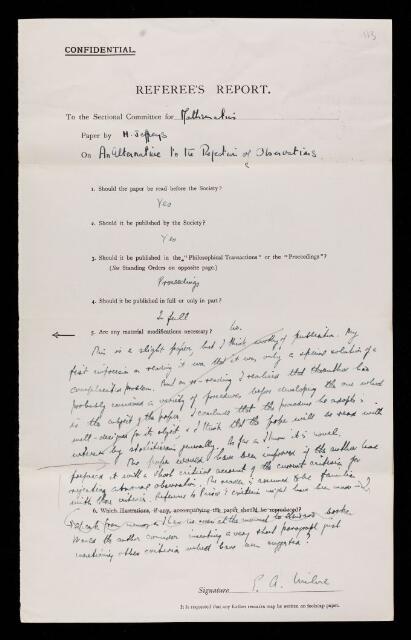 113
CONFIDENTIAL.
REFEREE'S REPORT.
To the Sectional Committee for Mathematics
Paper by H. Jeffreys
On An Alternative to the Rejection of Observations.
1. Should the paper be read before the Society?
Yes
2. Should it be published by the Society?
Yes
3. Should it be published in the "Philosophical Transactions" or the "Proceedings"?
(See Standing Orders on opposite page.)
Proceedings
4. Should it be published in full or only in part?
In full
5. Are any material modifications necessary? No.
This is a slight paper, but I think worthy of publication. My
first impression on reading it was that it was only a special solution of a
complicated problem. But on re-reading I realise that the author has
probably examined a variety of procedures, before developing the one which
is the subject of the paper. I conclude that the procedure he adopts is
well-designed for its object, & I think that the paper will be read with
interest by statisticians generally. So far as I know it is novel.
The paper would have been improved if the author had
prefaced it with a short critical account of the current criteria for
rejecting abnormal observations. The reader is assumed to be familiar
with these criteria. Reference to criteria might have been made
6. Which illustrations, if any, accompanying the paper should be reproduced?
from memory & I have no access at the moment to books
Would the author consider inserting a very short paragraph just
mentioning other criteria which have been suggested?
Signature E. A. Milne
It is requested that any further remarks may be written on foolscap paper.